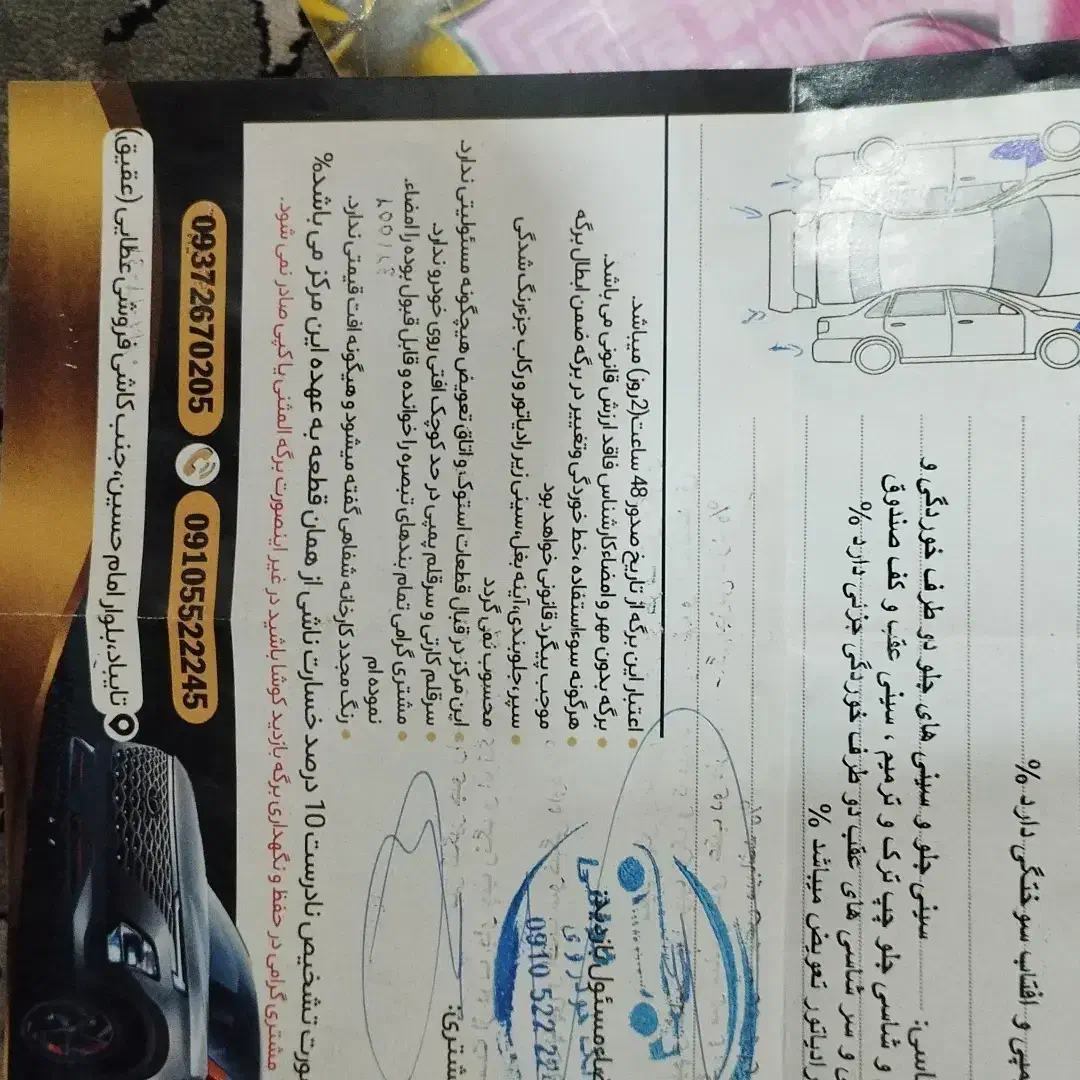 مپی و افتاب سوختگی دارد %
اسی: سینی جلو و سینی های جلو دو طرف خوردگی و
و شاسی جلو چپ ترک و ترمیم ، سینی عقب و کف صندوق
ی و سر شاسی های عقب دو طرف خوردگی جزئی دارد %
رادیاتور تعویض میباشد %
اعتبار این برگه از تاریخ صدور 48 ساعت(2روز) میباشد.
برگه بدون مهر و امضاء کارشناس فاقد ارزش قانونی می باشد.
هرگونه سوءاستفاده ،خط خوردگی وتغییر در برگه ضمن ابطال برگه
موجب پیگرد قانونی خواهد بود
سپر،جلوبندی،آینه بغل،سینی زیر رادیاتور و رکاب جزء رنگ شدگی
محسوب نمی گردد
این مرکز در قبال قطعات استوک و اتاق تعویض هیچگونه مسئولیتی ندارد
سرقلم کارتی و سرقلم پمپی در حد کوچک افتی روی خودرو ندارد
مشتری گرامی تمام بندهای تبصره را خوانده و قابل قبول بوده را امضاء
نموده ام
رنگ مجدد کارخانه شفاهی گفته میشود و هیگونه افت قیمتی ندارد.
ورت تشخیص نادرست 10 درصد خسارت ناشی از همان قطعه به عهده این مرکز می باشد%
مشتری گرامی در حفظ و نگهداری برگه بازدید کوشا باشید در غیر اینصورت برگه المثنی یا کپی صادر نمی شود.
ضاء مسئول بازدید:
0910 522 22
شتری:
09372670205
09105522245
تایباد،بلوار امام حسین،جنب کاشی فروشی عطایی (عقیق)